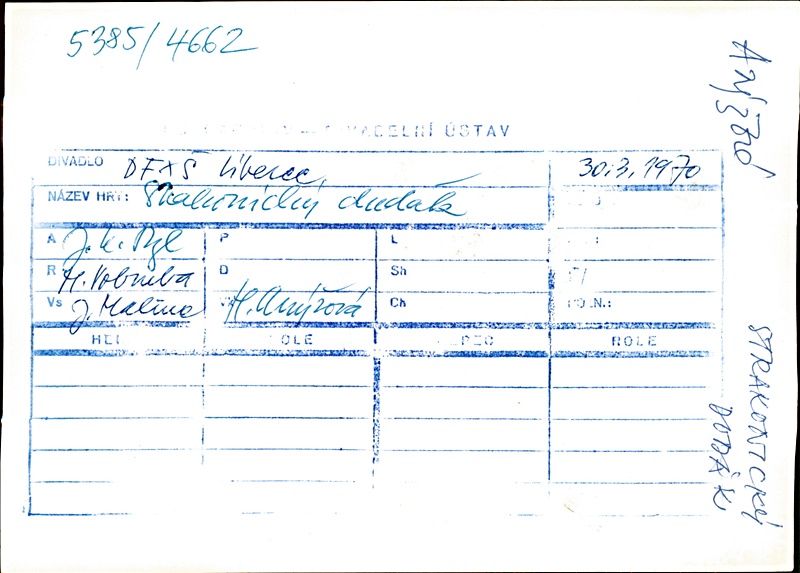 5385/4662
DIVADELNÍ ÚSTAV
DIVADLO DFXŠ Liberec 30.3.1970
NÁZEV HRY: Strakonický dudák
A J. K. Tyl P L
R M. Vobruba D Sh
Vs J. Malina H. Chýžová Ch
ROLE ROLE
STRAKONICKÝ
DUDÁK